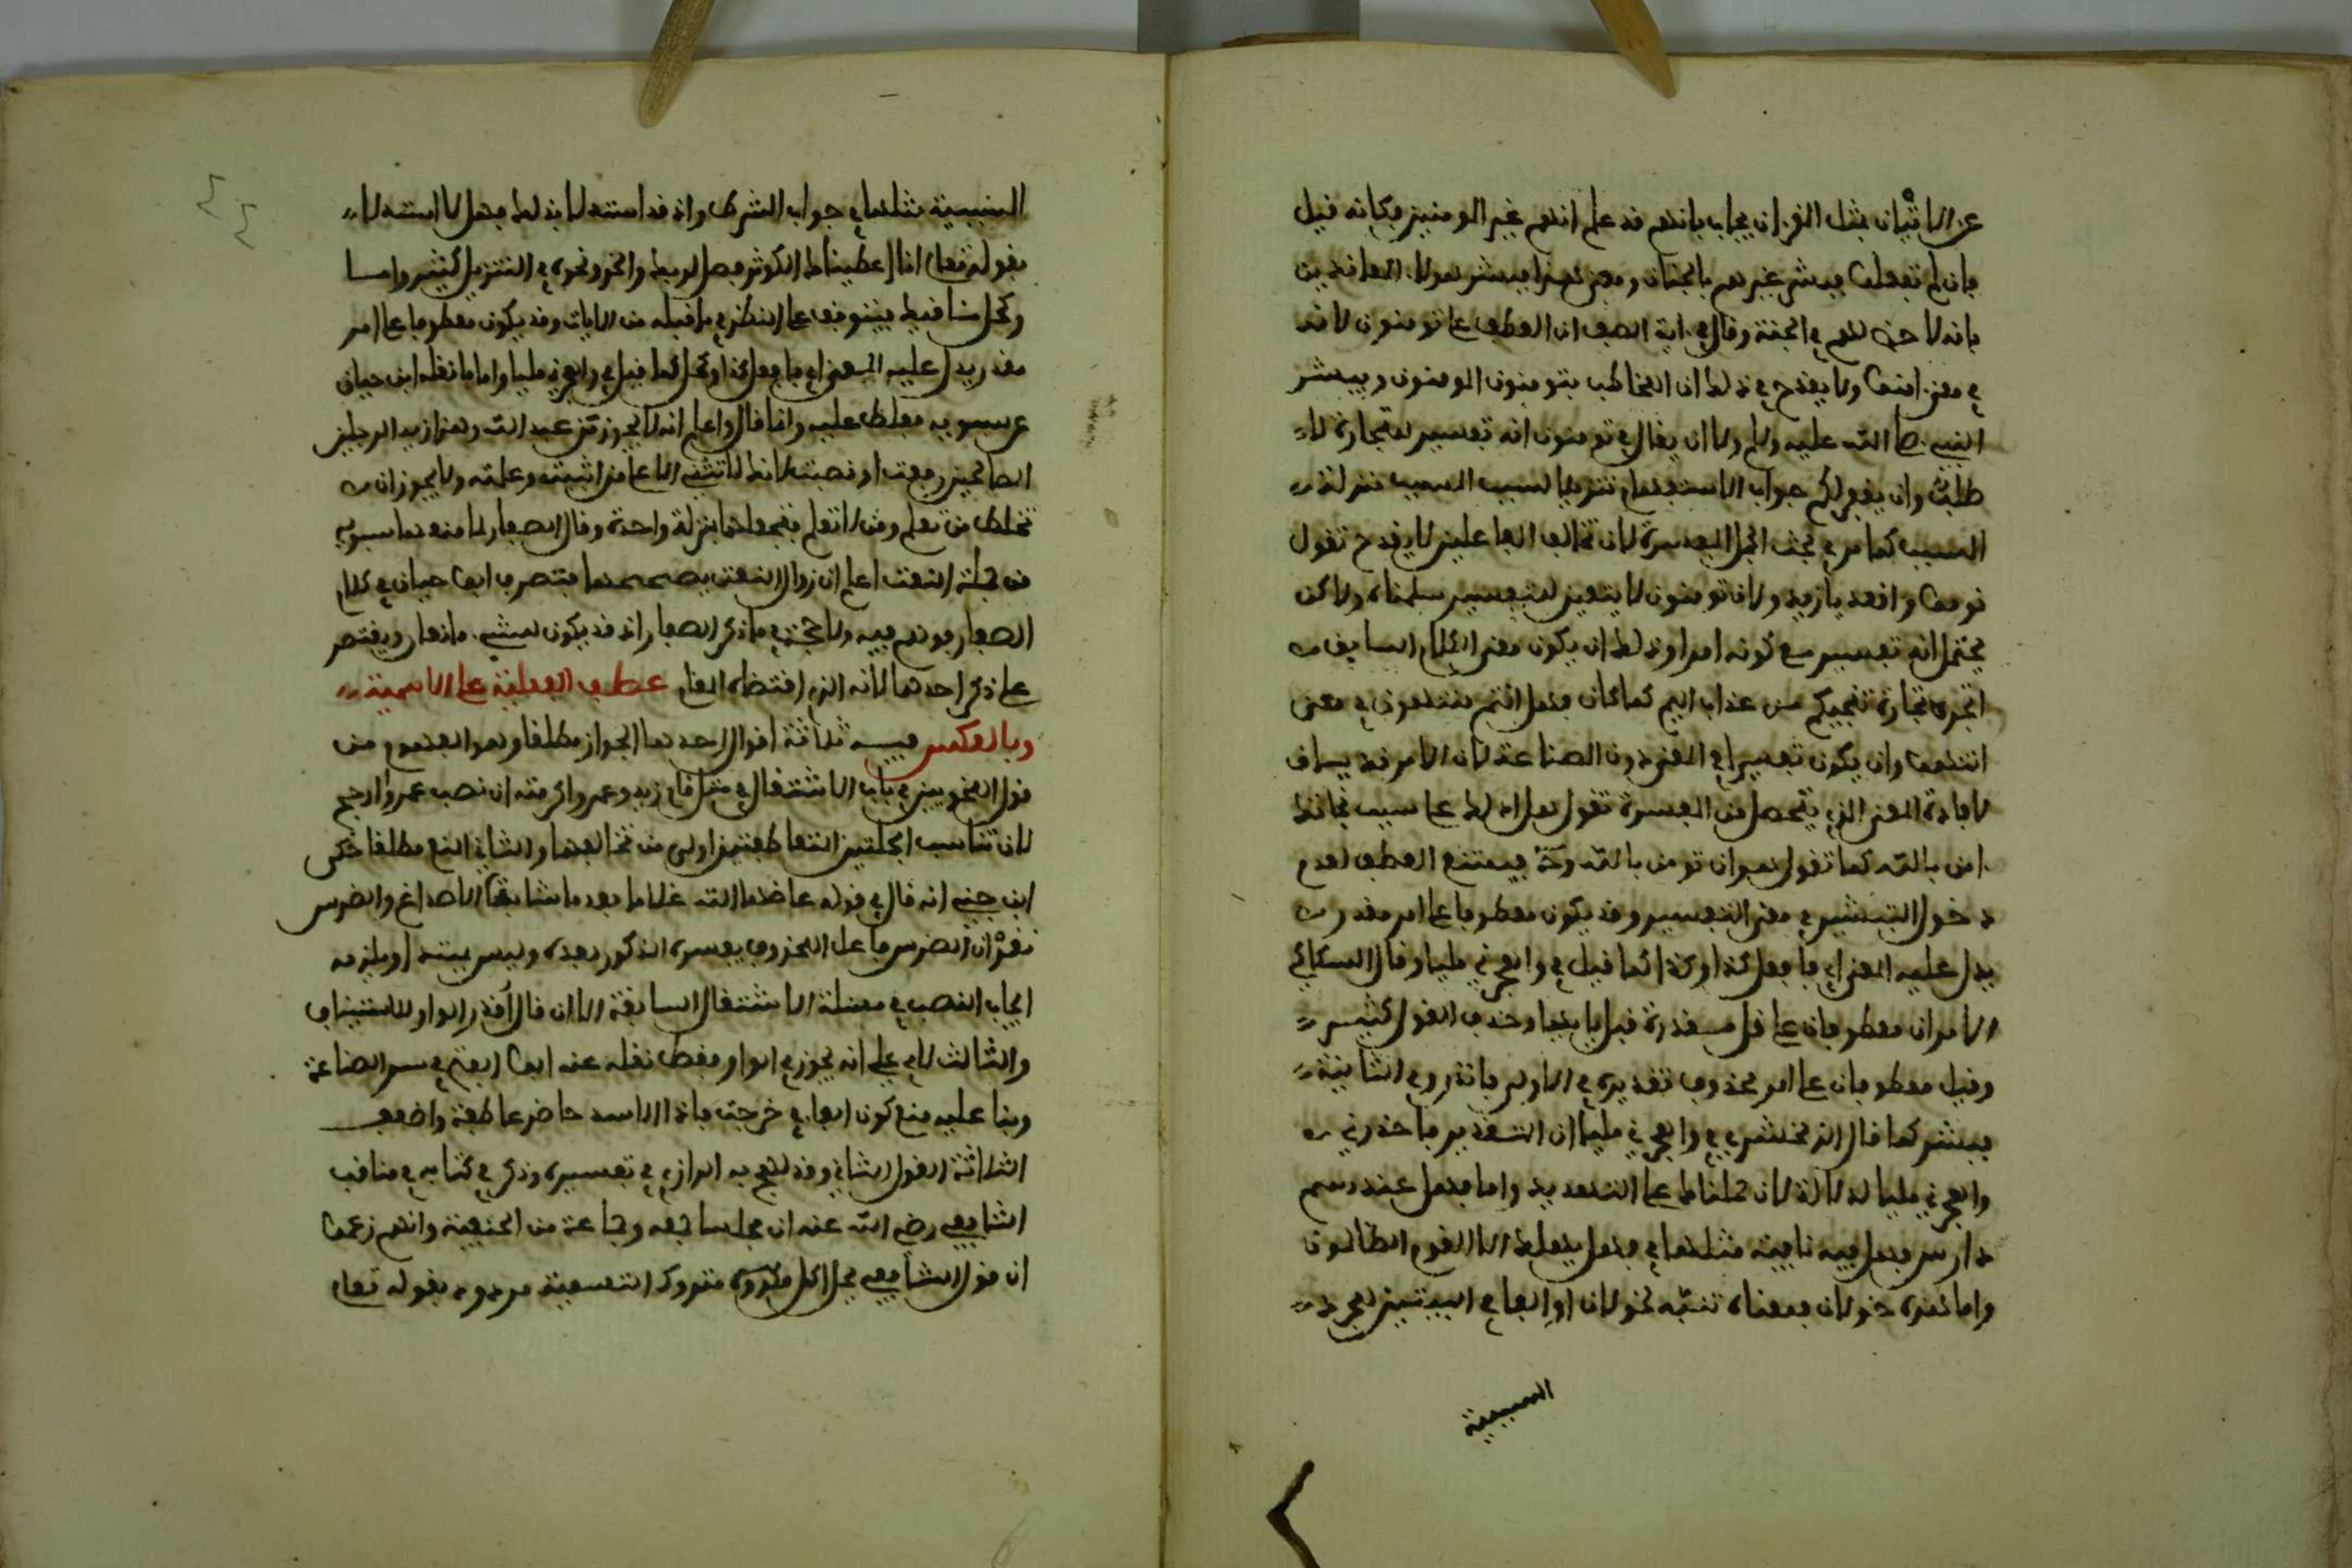 عن الاتيان بمثل القرءان يجاب بانهم قد علم انهم غير المومنين فكانه قيل
فان لم تفعلوا فبشر غيرهم بالجنات ومعنى هذا فبشر هولاء المعاندين
بانه لا حظ لهم في الجنة وقال في ءاية الصف ان العطف على تومنون لانه
في معنى ءامنوا ولا يقدح في ذلك ان المخاطب بتومنون المومنون وببشر
النبي صلى الله عليه وسلم ولا ان يقال في تومنون انه تفسير للتجارة لا
طلب وان يغفر لكم جواب الاستفهام تنزيلا لسبب السبب منزلة
السبب كما مر في بحث الجمل المفسرة لان تخالف الفاعلين لا يقدح تقول
قوموا واقعد يا زيد ولان تومنون لا يتعين للتفسير سلمناه ولاكن
يحتمل انه تفسير مع كونه امرا وذلك ان يكون معنى الكلام السابق
اتجروا تجارة تنجيكم من عذاب اليم كما كان فهل انتم منتهون في معنى
انتهوا وان يكون تفسيرا في المعنى دون الصناعة لان الامر قد يساق
لافادة المعنى الذي يتحصل من المفسرة تقول هل ادلك على سبب نجاتك
ءامن بالله كما تقول هو ان تومن بالله وحـ فيمتنع العطف لعدم
دخول التبشير في معنى التفسير وقد يكون معطوفا على امر مقدر
يدل عليه المعنى اي فافعل كذا وكذا كما قيل في واهجرني مليا وقال السكاكي
الامران معطوفان على قل مقدرة قبل يا ايها وحذف القول كثير
وقيل معطوفان على امر محذوف تقديره في الاولى فانذر وفي الثانية
فبشر كما قال الزمخشري في واهجرني مليا ان التقدير فاحذرني
واهجرني مليا لدلالة لان لم تنته على التهديد واما فهل عند رسم
دارس فهل فيه نافية مثلها في فهل يهلك الا القوم الظالمون
واما هذه خولان فمعناه تنبه لخولان او الفا في البيتين لمجرد
السببية
السببية مثلها في جواب الشرط واذ قد استدلا بذلك فهلا استدلا
بقوله تعلى انا اعطيناك الكوثر فصل لربك وانحر ونحوه في التنزيل كثير واما
وكحل ءاماقيك فيتوقف على النظر في ما قبله من الابيات وقد يكون معطوفا على امر
مقدر يدل عليه المعنى اي فافعل كذا وكحل كما قيل في واهجرني مليا واما ما نقله ابن حيان
عن سبويه فغلط عليه وانما قال واعلم انه لا يجوز من عبد الله وهذا زيد الرجلين
الصالحين رفعت او نصبت لانك لا تثني الا على من اثبته وعلمته ولا يجوز ان
تخلط من تعلم ومن لا تعلم فتجعلهما بمنزلة واحدة وقال الصفار لما منعها سبويه
من جهة النعت اعلم ان زوال النعت يصححها فتصرف ابو حيان في كلام
الصفار فوهم فيه ولا حجة في ما ذكر الصفار اذ قد يكون للشيء مانعان ويقتصر
على ذكر احدهما لانه الذي اقتضاه المقام عطف الفعلية على الاسمية
وبالعكس فيه ثلاثة اقوال احدها الجواز مطلقا وهو المفهوم من
قول النحويين في باب الاشتغال في مثل قام زيد وعمرو اكرمته ان نصب عمرو ارجح
لان تناسب الجملتين المتعاطفتين اولى من تخالفهما والثاني المنع مطلقا حكي
ابن جني انه قال في قوله عاضها الله غلاما بعد ما شابت الاصداغ والضرس
نقد ان الضرس فاعل لمحذوف يفسره المذكور بعده وليس بمبتدا ويلزمه
ايجاب النصب في مسئلة الاشتغال السابقة الا ان قال اقدر الواو للاستيناف
والثالث لابي علي انه يجوز في الواو فقط نقله عنه ابو الفتح في سر الصناعة
وبنى عليه منع كون الفا في خرجت فاذا الاسد حاضر عاطفة واضعف
الثلاثة القول الثاني وقد لهج به الرازي في تفسيره وذكر في كتابه في مناقب
الشافعي رضي الله عنه ان مجلسا جمعه وجماعة من الحنفية وانهم زعموا
ان قول الشافعي يحل اكل متروك التسمية مردود بقوله تعلى